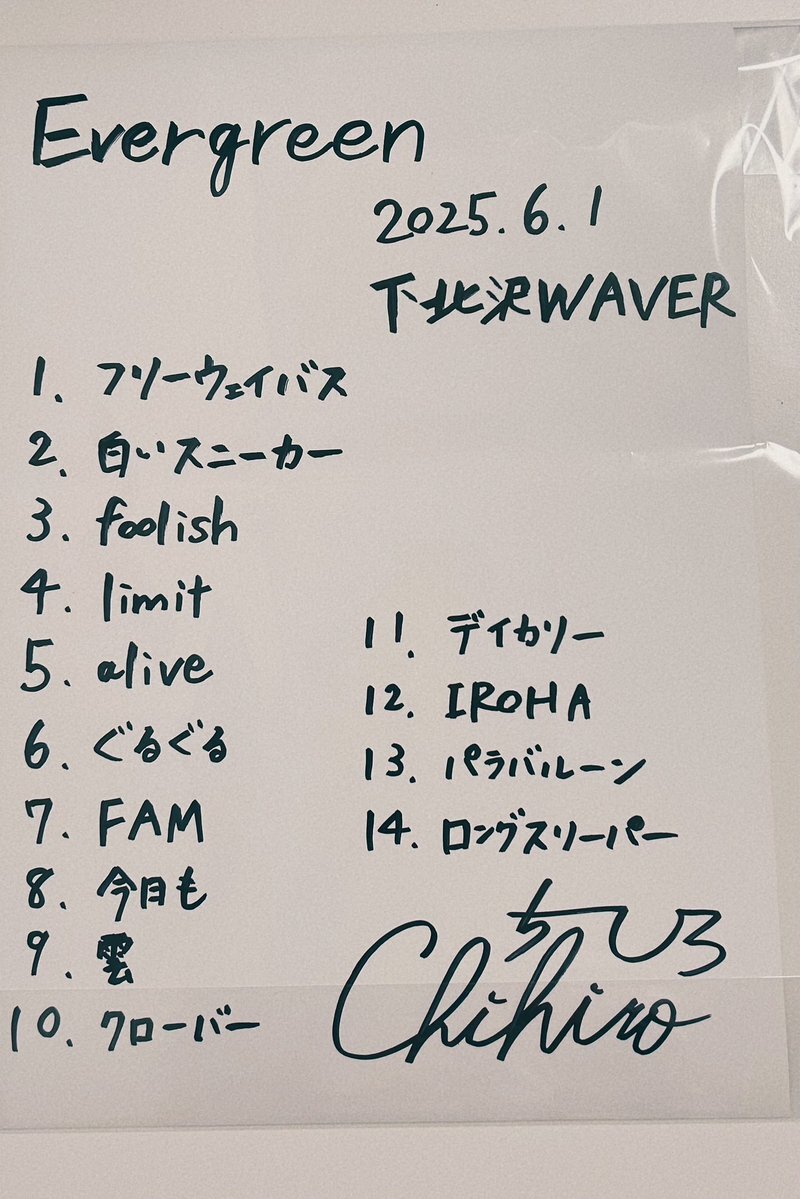 Evergreen
2025.6.1
下北沢WAVER
1. フリーウェイバス
2. 白いスニーカー
3. foolish
4. limit
5. alive
6. ぐるぐる
7. FAM
8. 今日も
9. 雲
10. クローバー
11. デイカリー
12. IROHA
13. パラバルーン
14. ロングスリーパー
ちひろ
Chihiro